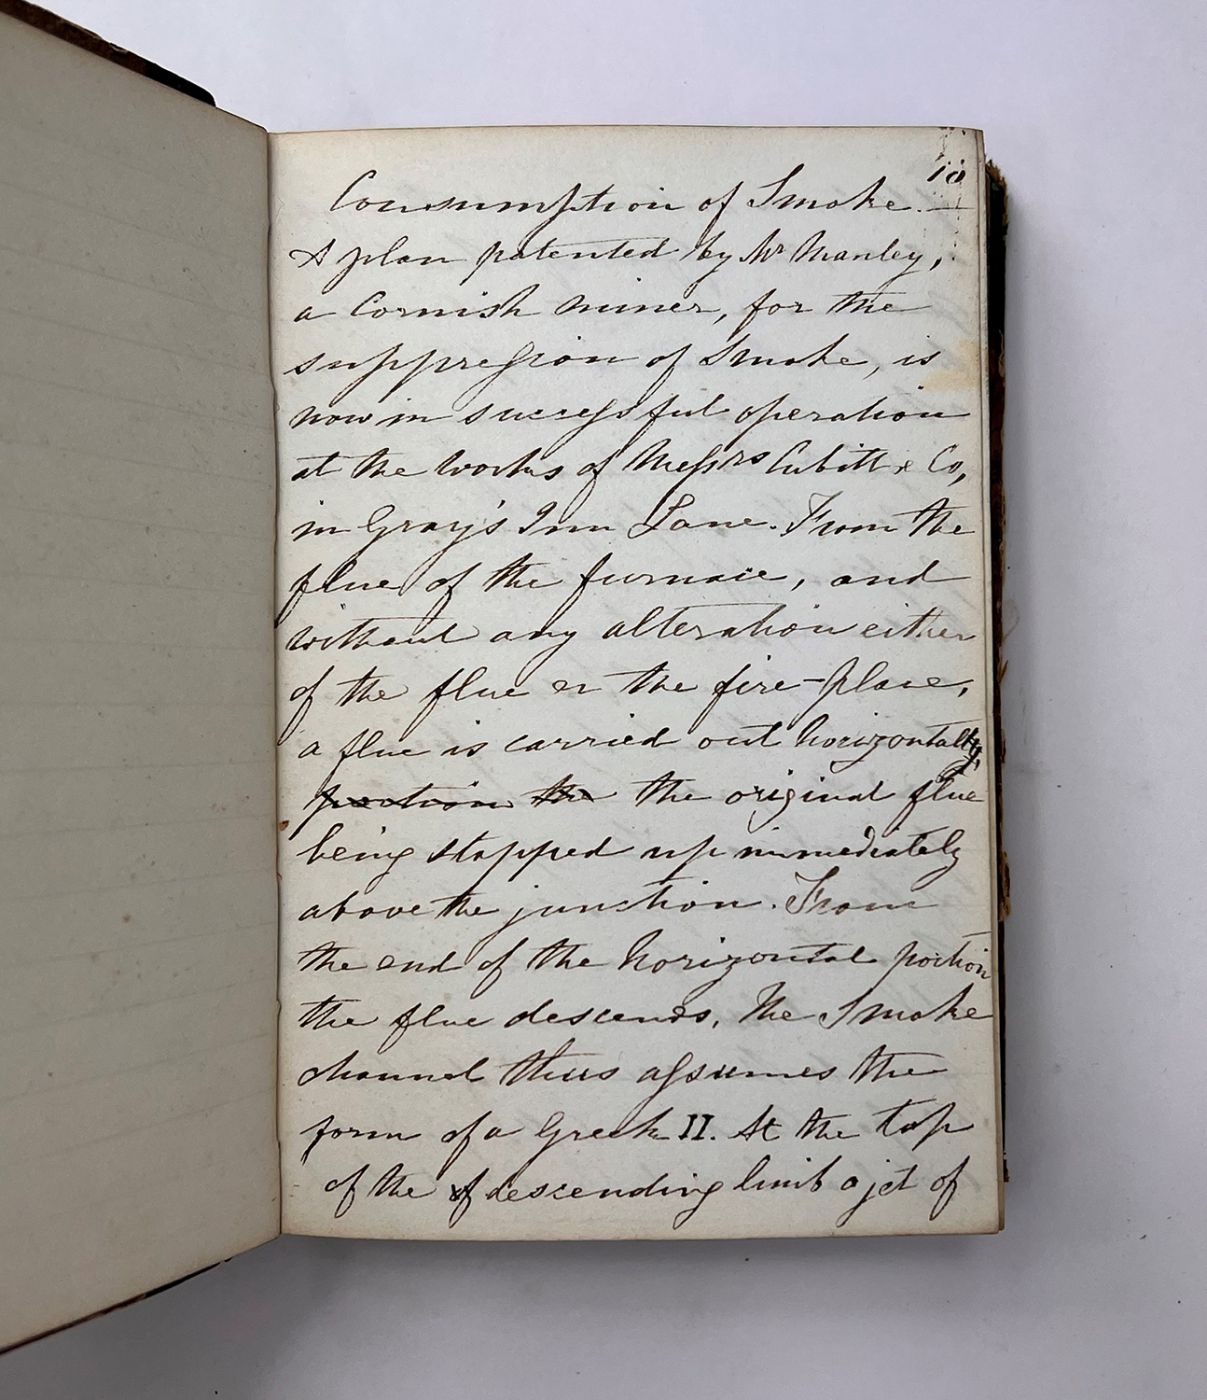 10
Consumption of Smoke. —
A plan patented by Mr Manley,
a Cornish miner, for the
suppression of smoke, is
now in successful operation
at the works of Messrs Cubitt & Co,
in Gray's Inn Lane. From the
flue of the furnace, and
without any alteration either
of the flue or the fire-place,
a flue is carried out horizontally,
the the original flue
being stopped up immediately
above the junction. From
the end of the horizontal portion
the flue descends. The smoke
channel thus assumes the
form of a Greek II. At the top
of the of descending limb a jet of